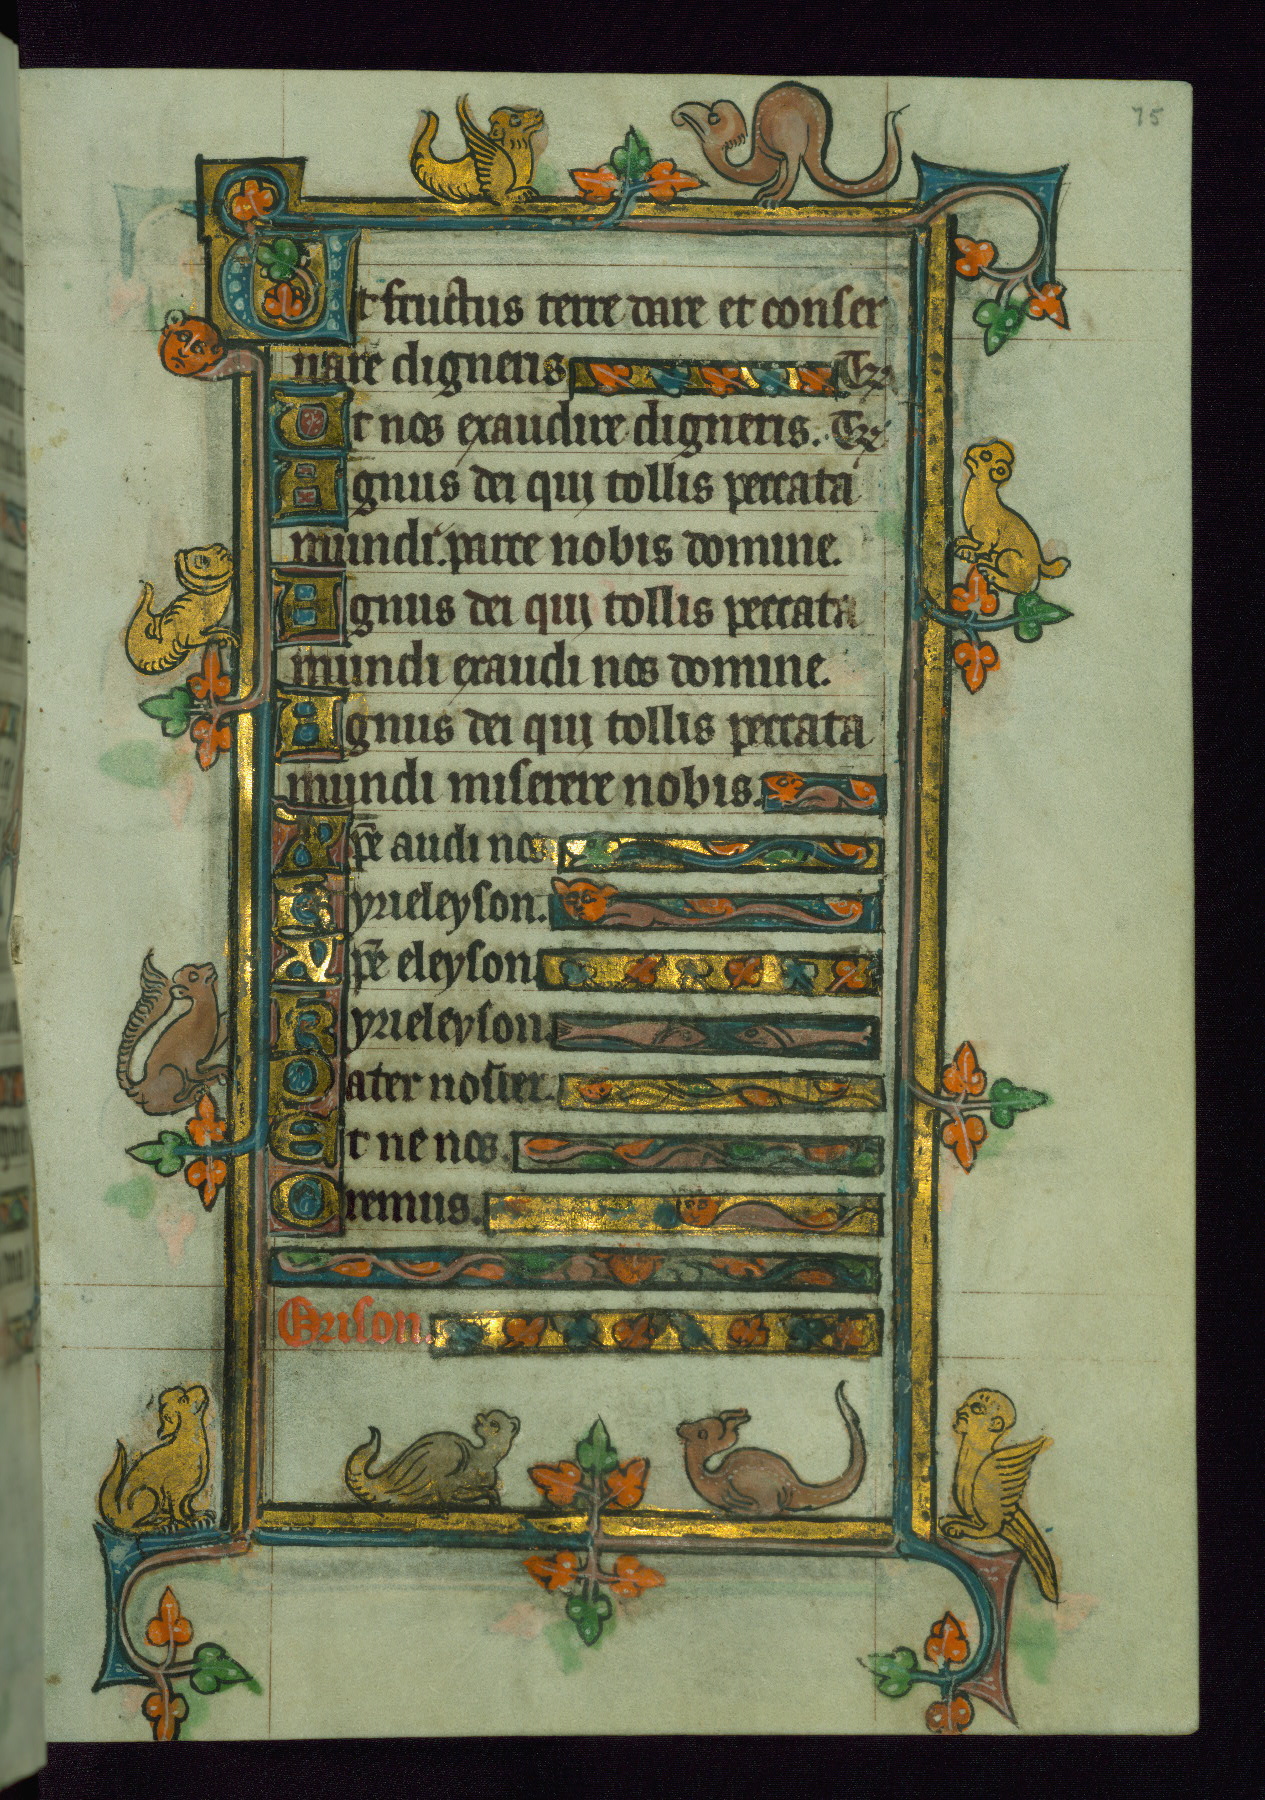 75
Ut fructus terre dare et conser
uare digneris Te
Ut nos exaudire digneris. Te
Agnus dei qui tollis peccata
mundi. parce nobis domine.
Agnus dei qui tollis peccata
mundi exaudi nos domine.
Agnus dei qui tollis peccata
mundi miserere nobis.
Xp̄e audi nos
Kyrieleyson.
Xp̄e eleyson.
Kyrieleyson.
Pater noster.
Et ne nos.
Oremus.
Orison.